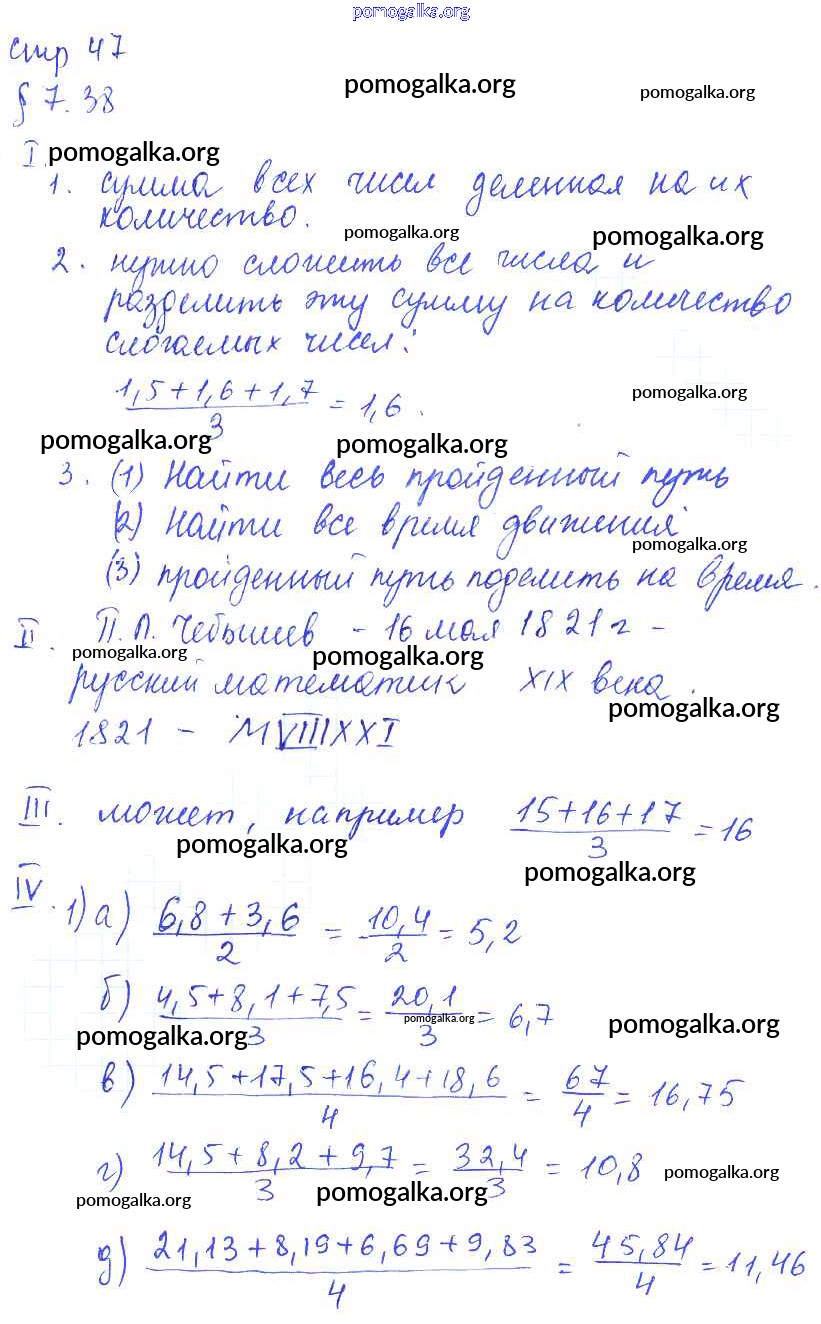 pomogalka.org
стр 47
pomogalka.org pomogalka.org
§ 7.38
I. pomogalka.org
1. сумма всех чисел деленная на их
количество.
pomogalka.org pomogalka.org
2. нужно сложить все числа и
разделить эту сумму на количество
слогаемых чисел:
(1,5+1,6+1,7)/3 = 1,6.
pomogalka.org
pomogalka.org pomogalka.org
3. (1) Найти весь пройденный путь
(2) Найти все время движения
pomogalka.org
(3) пройденный путь поделить на время.
II. П.Л. Чебышев - 16 мая 1821 г -
pomogalka.org pomogalka.org
русский математик XIX века.
pomogalka.org
1821 - MVIIIXXI
III. может, например (15+16+17)/3 = 16
pomogalka.org
pomogalka.org
IV. 1) а) (6,8+3,6)/2 = 10,4/2 = 5,2
б) (4,5+8,1+7,5)/3 = 20,1/3 = 6,7
pomogalka.org pomogalka.org pomogalka.org
в) (14,5+17,5+16,4+18,6)/4 = 67/4 = 16,75
г) (14,5+8,2+9,7)/3 = 32,4/3 = 10,8
pomogalka.org
pomogalka.org pomogalka.org
д) (21,13+8,19+6,69+9,83)/4 = 45,84/4 = 11,46